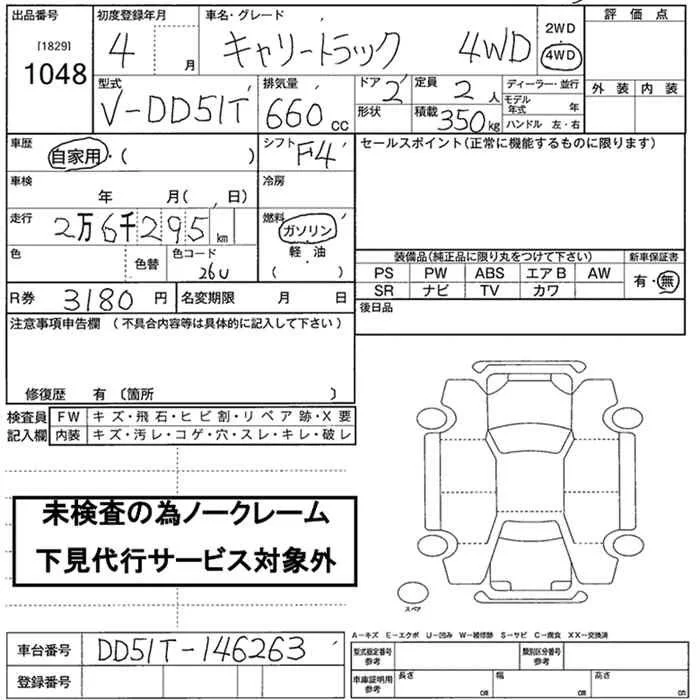 出品番号
[1829]
1048
初度登録年月
4 月
車名・グレード
キャリートラック 4WD
2WD
4WD
評価点
外装 内装
型式
V-DD51T
排気量
660 cc
ドア 2
形状
定員 2 人
積載 350 kg
ディーラー・並行
モデル年式 年
ハンドル 左・右
車歴
自家用・( )
シフト F4
セールスポイント(正常に機能するものに限ります)
車検
年 月( 、 日)
冷房
走行
2万6千295 km
燃料
ガソリン
軽油
( )
色
色替
色コード
26U
装備品(純正品に限り丸をつけて下さい)
新車保証書
PS PW ABS エアB AW
SR ナビ TV カワ
有・無
R券 3180 円
名変期限 月 日
後日品
注意事項申告欄 (不具合内容等は具体的に記入して下さい)
修復歴 有 〔箇所 〕
検査員 FW キズ・飛石・ヒビ割・リペア跡・X要
記入欄 内装 キズ・汚レ・コゲ・穴・スレ・キレ・破レ
未検査の為ノークレーム
下見代行サービス対象外
スペア
A-キズ E-エクボ U-凹み W-補修跡 S-サビ C-腐食 XX-交換済
車台番号 DD51T-146263
登録番号
型式指定番号
参考
類別区分番号
参考
車庫証明用
参考
長さ cm
幅 cm
高さ cm